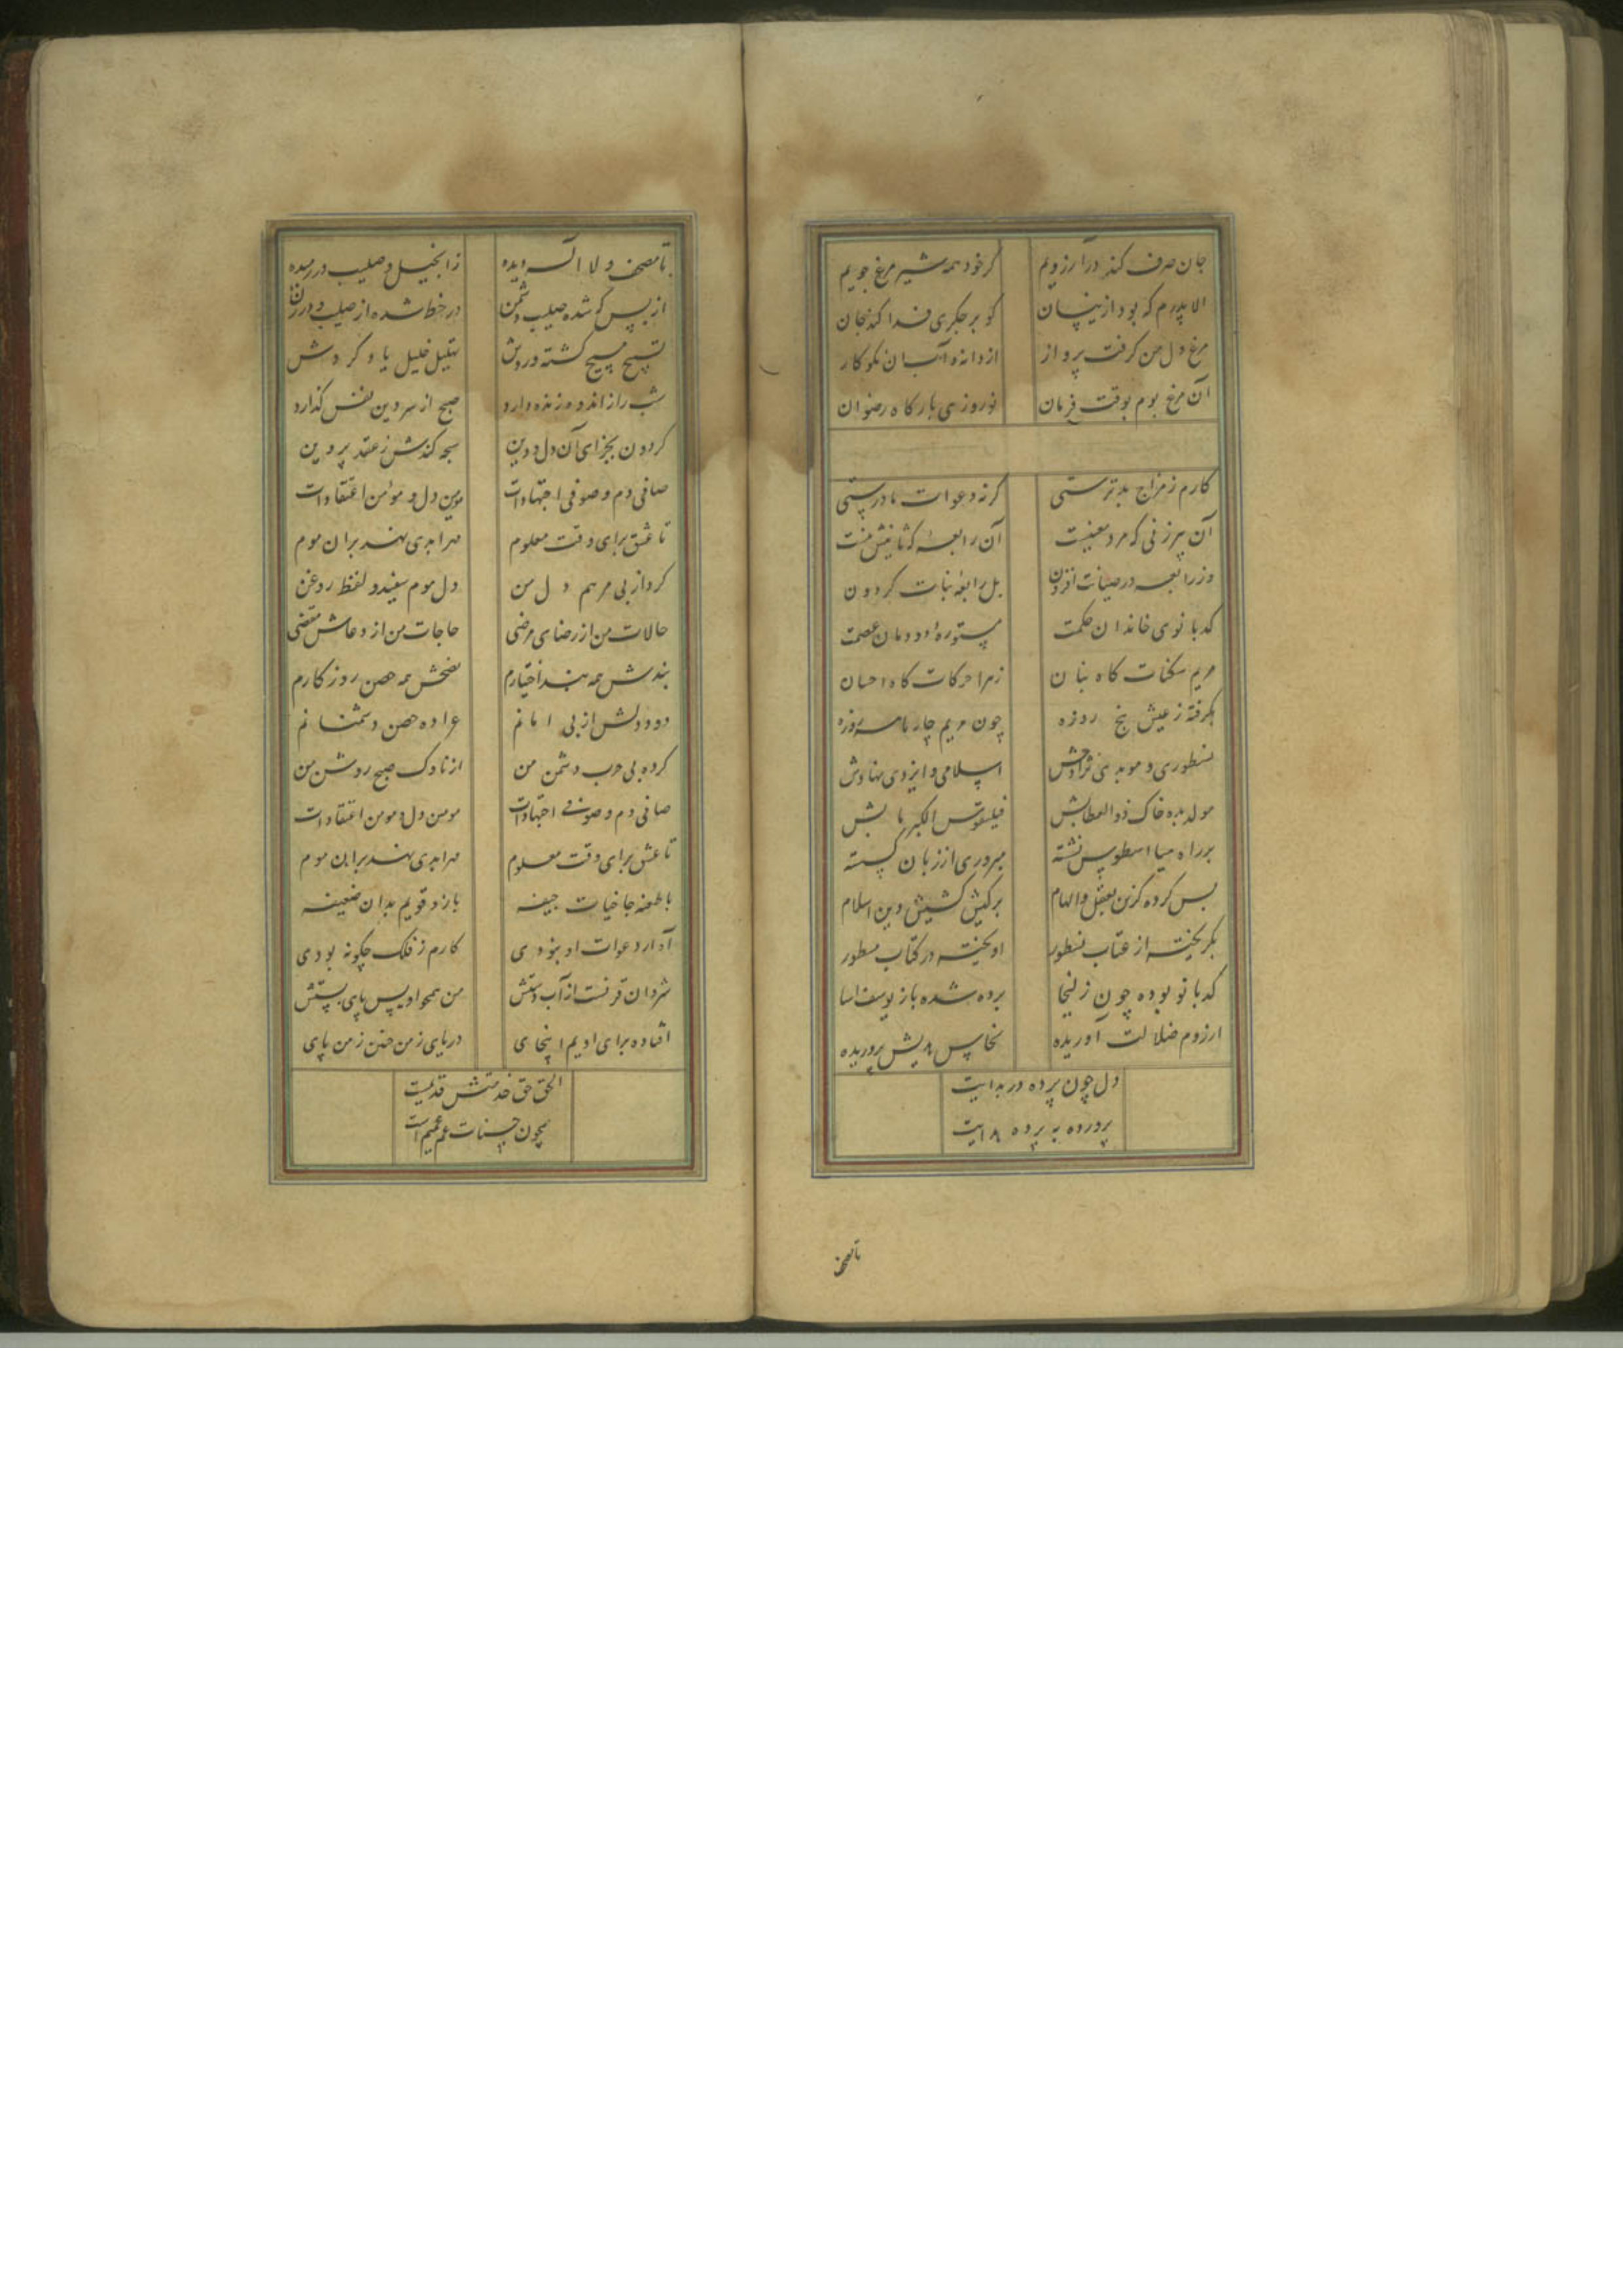 جان صرف کند در آرزویم گر خود همه شیر مرغ جویم
الا پدرم که بود ازینسان کو بر جگری فدا کند جان
مرغ دل من گرفت پرواز از دانه آنسان نکوکار
آن مرغ بوم بوقت فرمان نوروزی بارکاه رضوان
کارم ز مزاج بد ترستی گرنه دعوات مادرستی
آن پیرزنی که مرد معنیست آن رابعه که ثانیش نیست
وز رابعه در صیانت افزون بل رابعهٔ بنات کردون
کدبانوی خاندان حکمت مستورهٔ دودمان عصمت
مریم سکنات کاه بنیان زهرا حرکات کاه احسان
بگرفته ز عیش پنج روزه چون مریم چار ماهه روزه
نسطوری و موبدی نژادش اسلامی و ایزدی نهادش
مولد بده خاک ذوالعطابش فیلقوس الکبر بابش
بر راه مسطوس نشته سروری از زبان کسسته
پس کرده گزین بعقل و الهام بر کیش کشیش دین اسلام
بگریخته از عتاب نسطور آویخته در کتاب مسطور
کدبانو بوده چون زلیخا برده شده باز یوسف آسا
از روم ضلالت آوریده نخاس هدیش پروریده
دل چون پرده در بدایت
پرورده به پرده هدایت
تا مصحف
تا مصحف و لا اله دیده ز انجیل و صلیب در رمیده
از بس که شده صلیب دشمن در خط شده از صلیب و درزن
تسبیح مسیح گشته وردش تهلیل خلیل یاد کردش
شب را ز اندوه زنده دارد صبح از سر دین نفس گذارد
کردون بجزای آن دل و دین سبحه کندش ز عقد پروین
صافی دم و صوفی اجتهادات مومن دل و مؤمن اعتقادات
تا عشق برای وقت معلوم مهر ابدی نهند بران موم
کرد از پی مرهم دل من دل موم سفید و لفظ روغن
حالات من از رضای مرضی حاجات من از دعاش مقضی
بندش همه بند اختیارم نصحش همه حصن روزکارم
دود دلش از پی امانم عراده حصن دشمنانم
کرده پی حرب دشمن من از ناوک صبح روشن من
صافی دم و صوفی اجتهادات مومن دل و مومن اعتقادات
تا عشق برای وقت معلوم مهر ابدی نهند بران موم
با طعنه جا خیات جیفه بازد قویم بدان ضعیفه
آدار دعوات او نبودی کارم ز فلک چگونه بودی
شروان قرنست از آب دستش من همچو اویس پای بستش
افتاده برای او یم اینجای دریای ز من ز من پای
الحق حق خدمتش قدیمست
همچون حسنات عم عمیم است